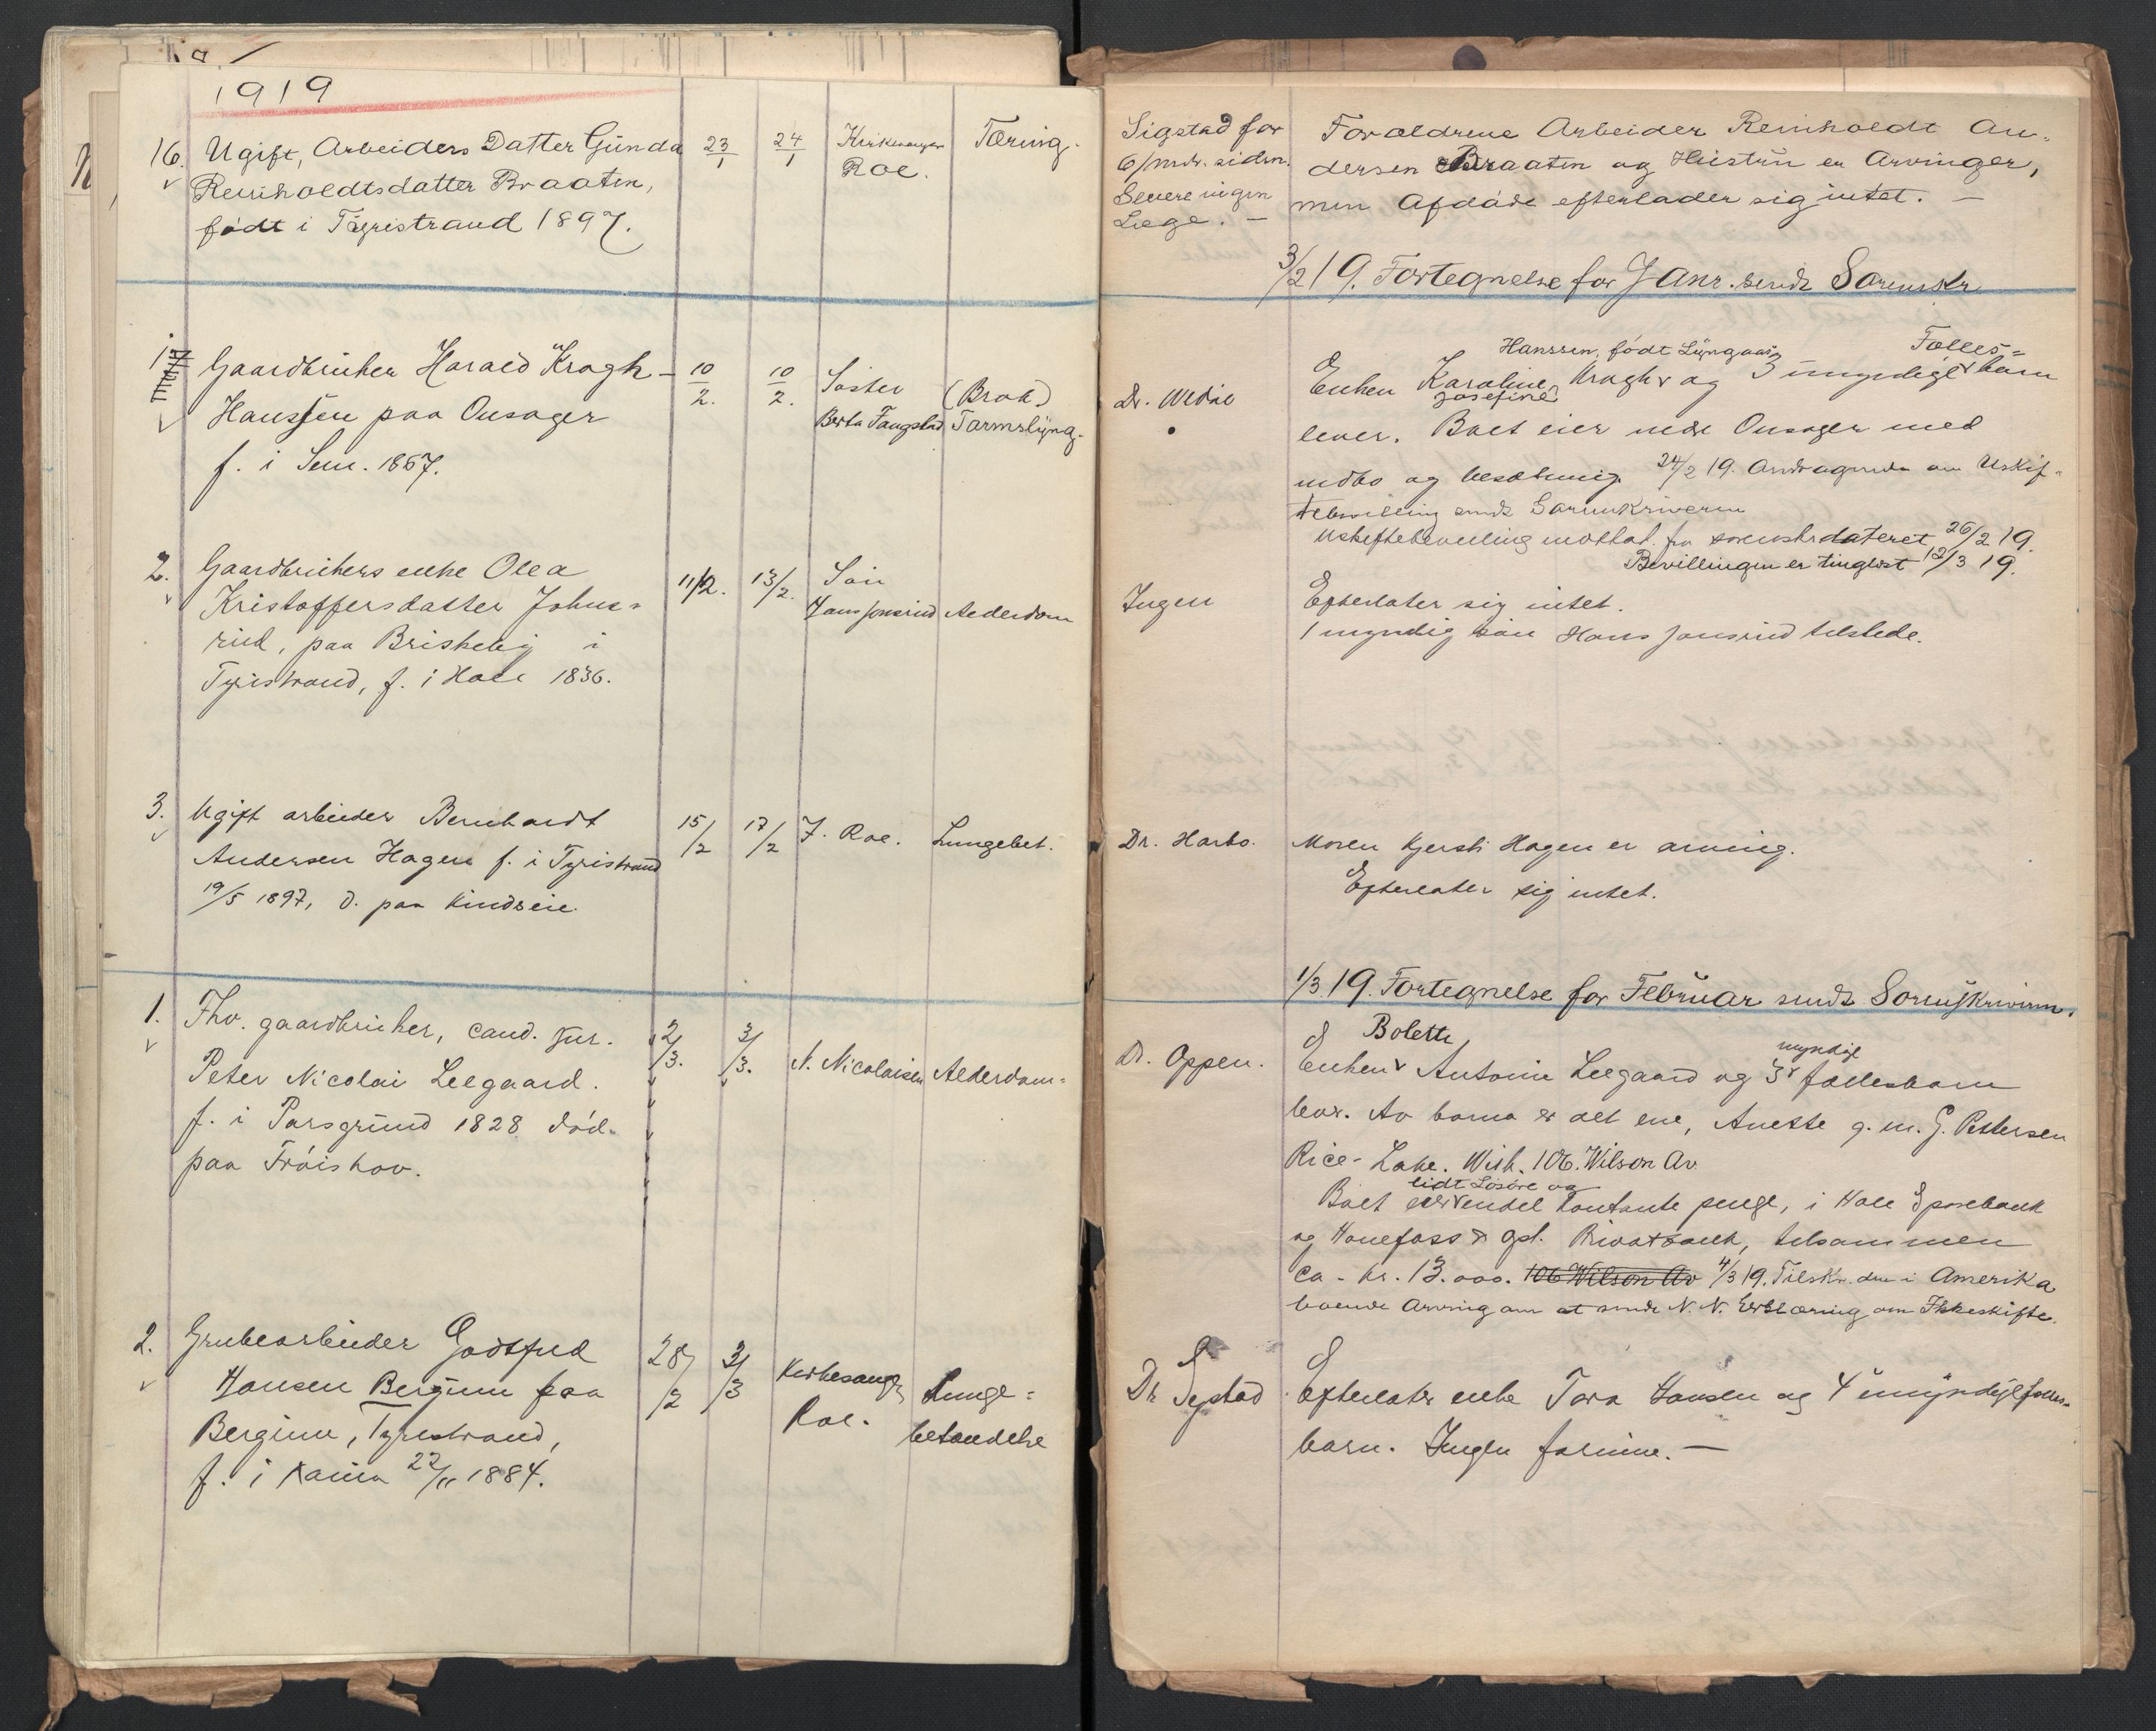 1919
16. Ugift, Arbeiders Datter Gunda
Reinholdtsdatter Braaten,
født i Tyristrand 1897.
23/1
24/1
Roe.
Tæring.
Gaardbruker Harald Kragh-
Hanssen paa Onsager
f. i Sem. 1867.
10/2.
10/2.
Søster
Berta Fangstad
(Brok)
Tarmslyng.
2. Gaardbrukers enke Olea
Kristoffersdatter Johns-
rud, paa Briskeby i
Tyristrand, f. i Hole 1836.
11/2.
13/2.
Søn
Hans Jonsrud
Alderdom
3. Ugift arbeider Bernhardt
Andersen Hagen f. i Tyristrand
19/5 1897, d. paa Kindseie.
15/2
17/2
J. Roe.
Lungebet.
1. Fhv. gaardbruker, cand. jur.
Peter Nicolai Leegaard.
f. i Porsgrund 1828 død
paa Frøishov.
2/3.
3/3.
N. Nicolaisen
Alderdom-
2. Grubearbeider Godtfred
Hansen Bergum paa
Bergum, Tyristrand,
f. i 22/11 1884.
28/2
3/3
Kirkesanger
Roe.
Lunge-
betændelse
Sigstad for
6/mdr. siden.
Senere ingen
Læge. —
Forældrene Arbeider Reinholdt An-
dersen Braaten og Hustru er Arvinger,
men Afdøde efterlader sig intet. —
3/2 19. Fortegnelse for Janr. sendt Sorenskr.
Dr. Wedie
Hanssen, født Lyngaas
Fælles-
Enken Karoline Kragh og 3 umyndige barn
Josefine
lever. Boet eier nedre Onsager med
indbo og besætning. 24/2 19. Andragende om Uskif-
tebevilling sendt Sorenskriveren
Uskiftebevilling mottat fra sorenskr dateret 26/2 19.
Bevillingen er tinglæst 12/3 19.
Ingen
Efterlater sig intet.
1 myndig søn Hans Jonsrud tilstede.
Dr. Harbo.
Moren Kjersti Hagen er arving.
Efterlater sig intet.
1/3 19. Fortegnelse for Februar sendt Sorenskriveren.
Dr. Oppen.
Bolette
myndige
Enken Antonie Leegaard og 3 fællesbarn
lever. Av barna er det ene, Anette g. m. G. Pettersen
Rice-Lake. Wish. 106. Wilson Av.
lidt Løsøre og
Boet eier endel kontante penge, i Hole Sparebank
og Hønefoss & opl. Privatbank, tilsammen
ca. kr. 13.000. 106 Wilson Av 4/3 19. Tilskr. den i Amerika
boende Arving om at sende N. N. Erklæring om Ikkeskifte.
Dr Sigstad
Efterlater enke Tora Hansen og 4 umyndige felles-
barn. Ingen formue. —